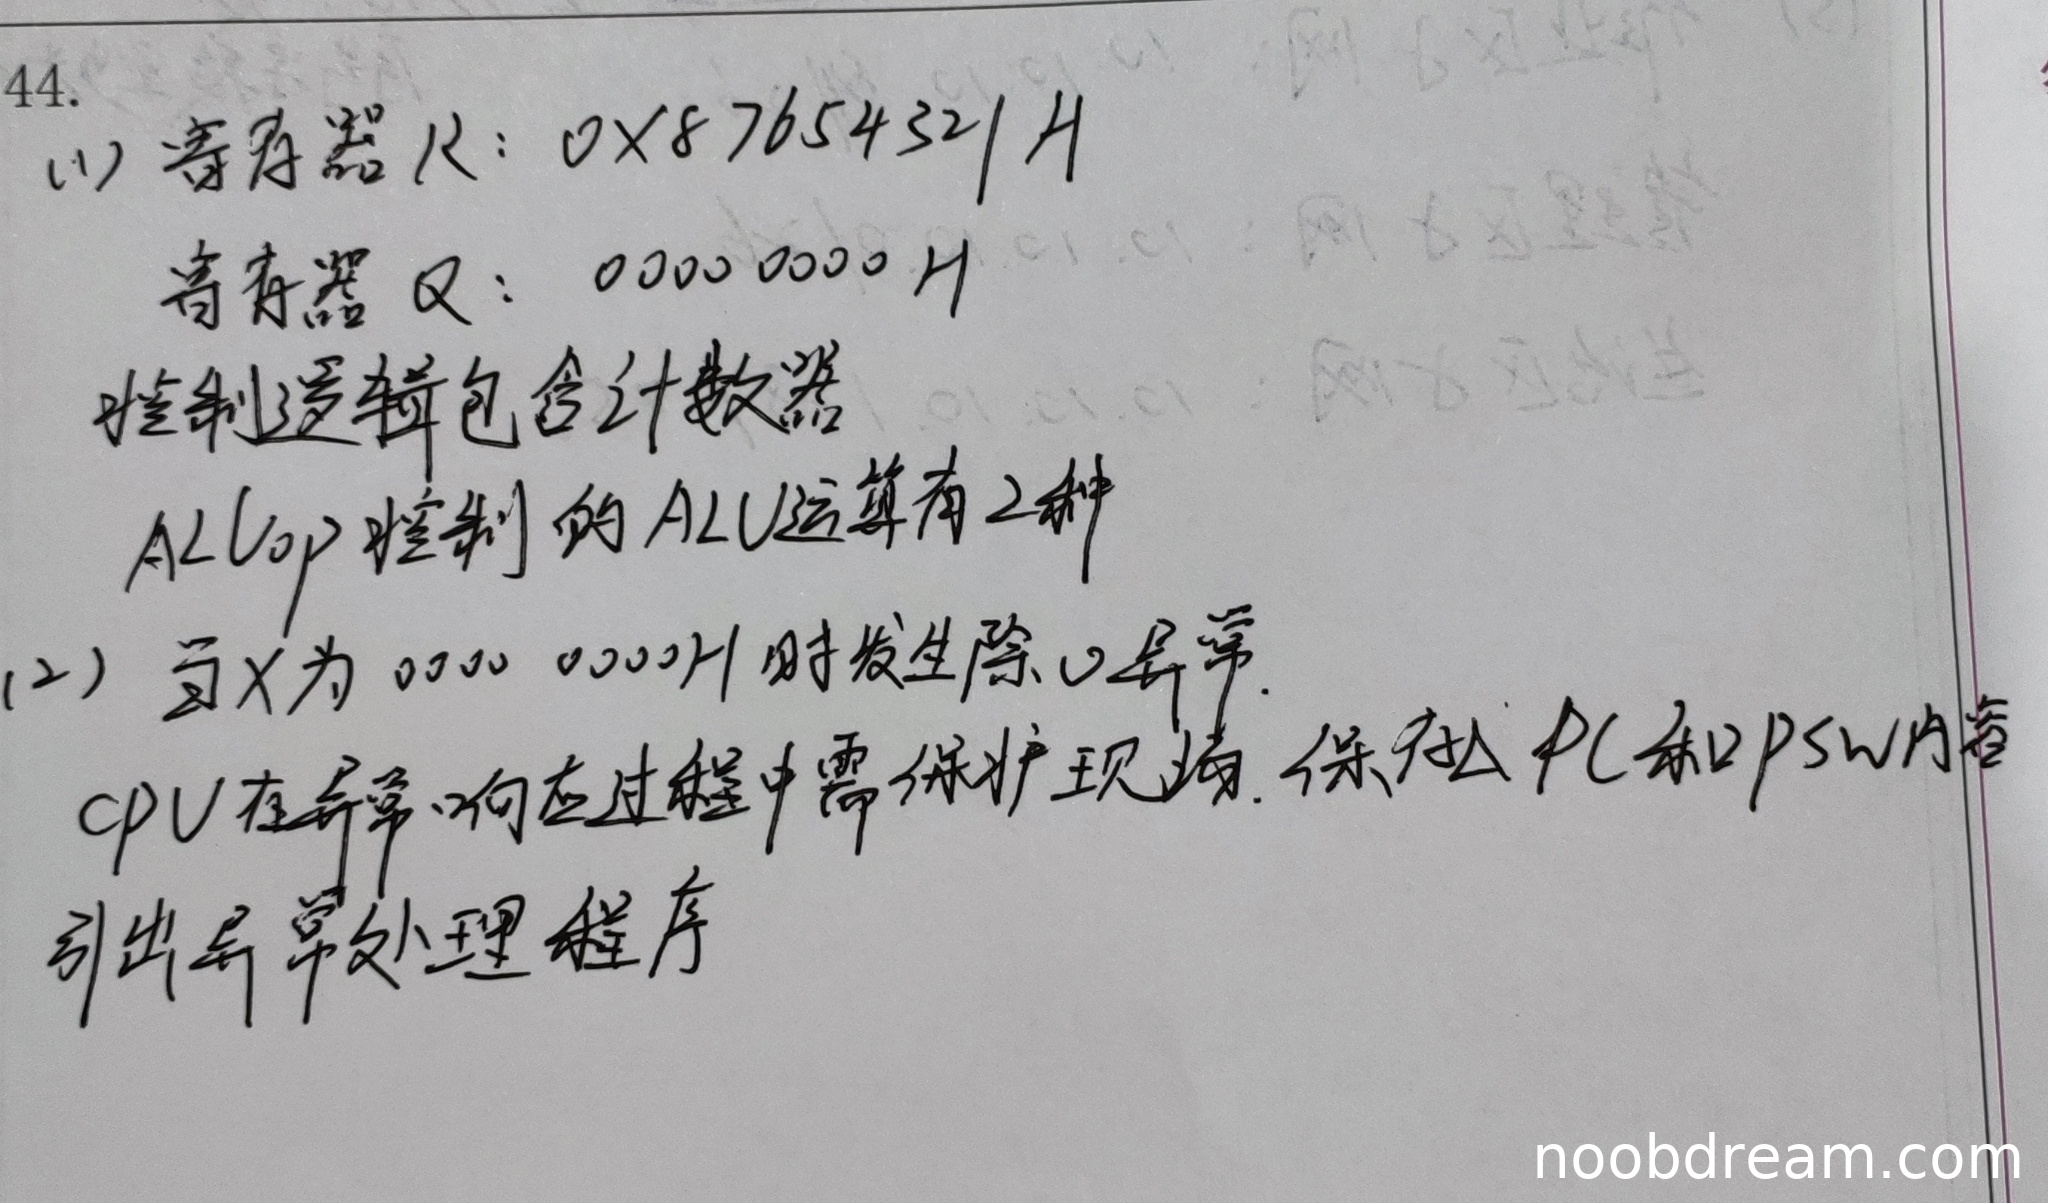 44.
(1) 寄存器 R: 0X87654321H
寄存器 Q: 0000 0000 H
控制逻辑包含计数器
ALUop 控制的 ALU运算有2种
(2) 当X为 0000 0000H 时发生除0异常.
CPU在异常响应过程中需保护现场. 保存 PC和PSW内容
引出异常处理程序
noobdream.com